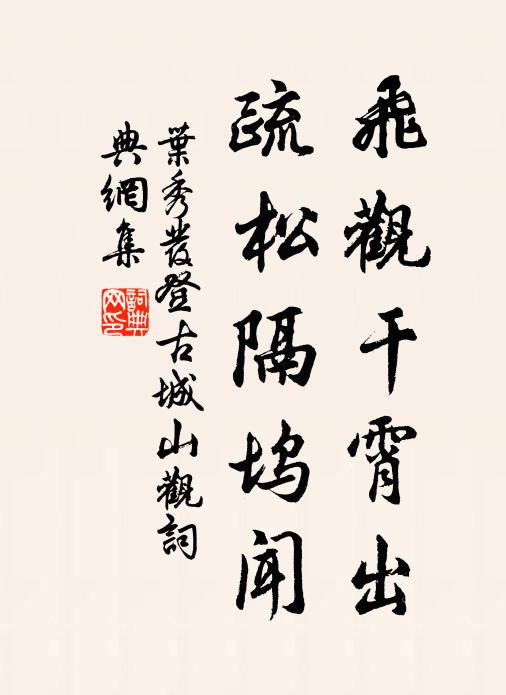 飛觀干霄出
疏松隔塢聞
葉秀發登古城山觀詞
典網集
詞典
网印